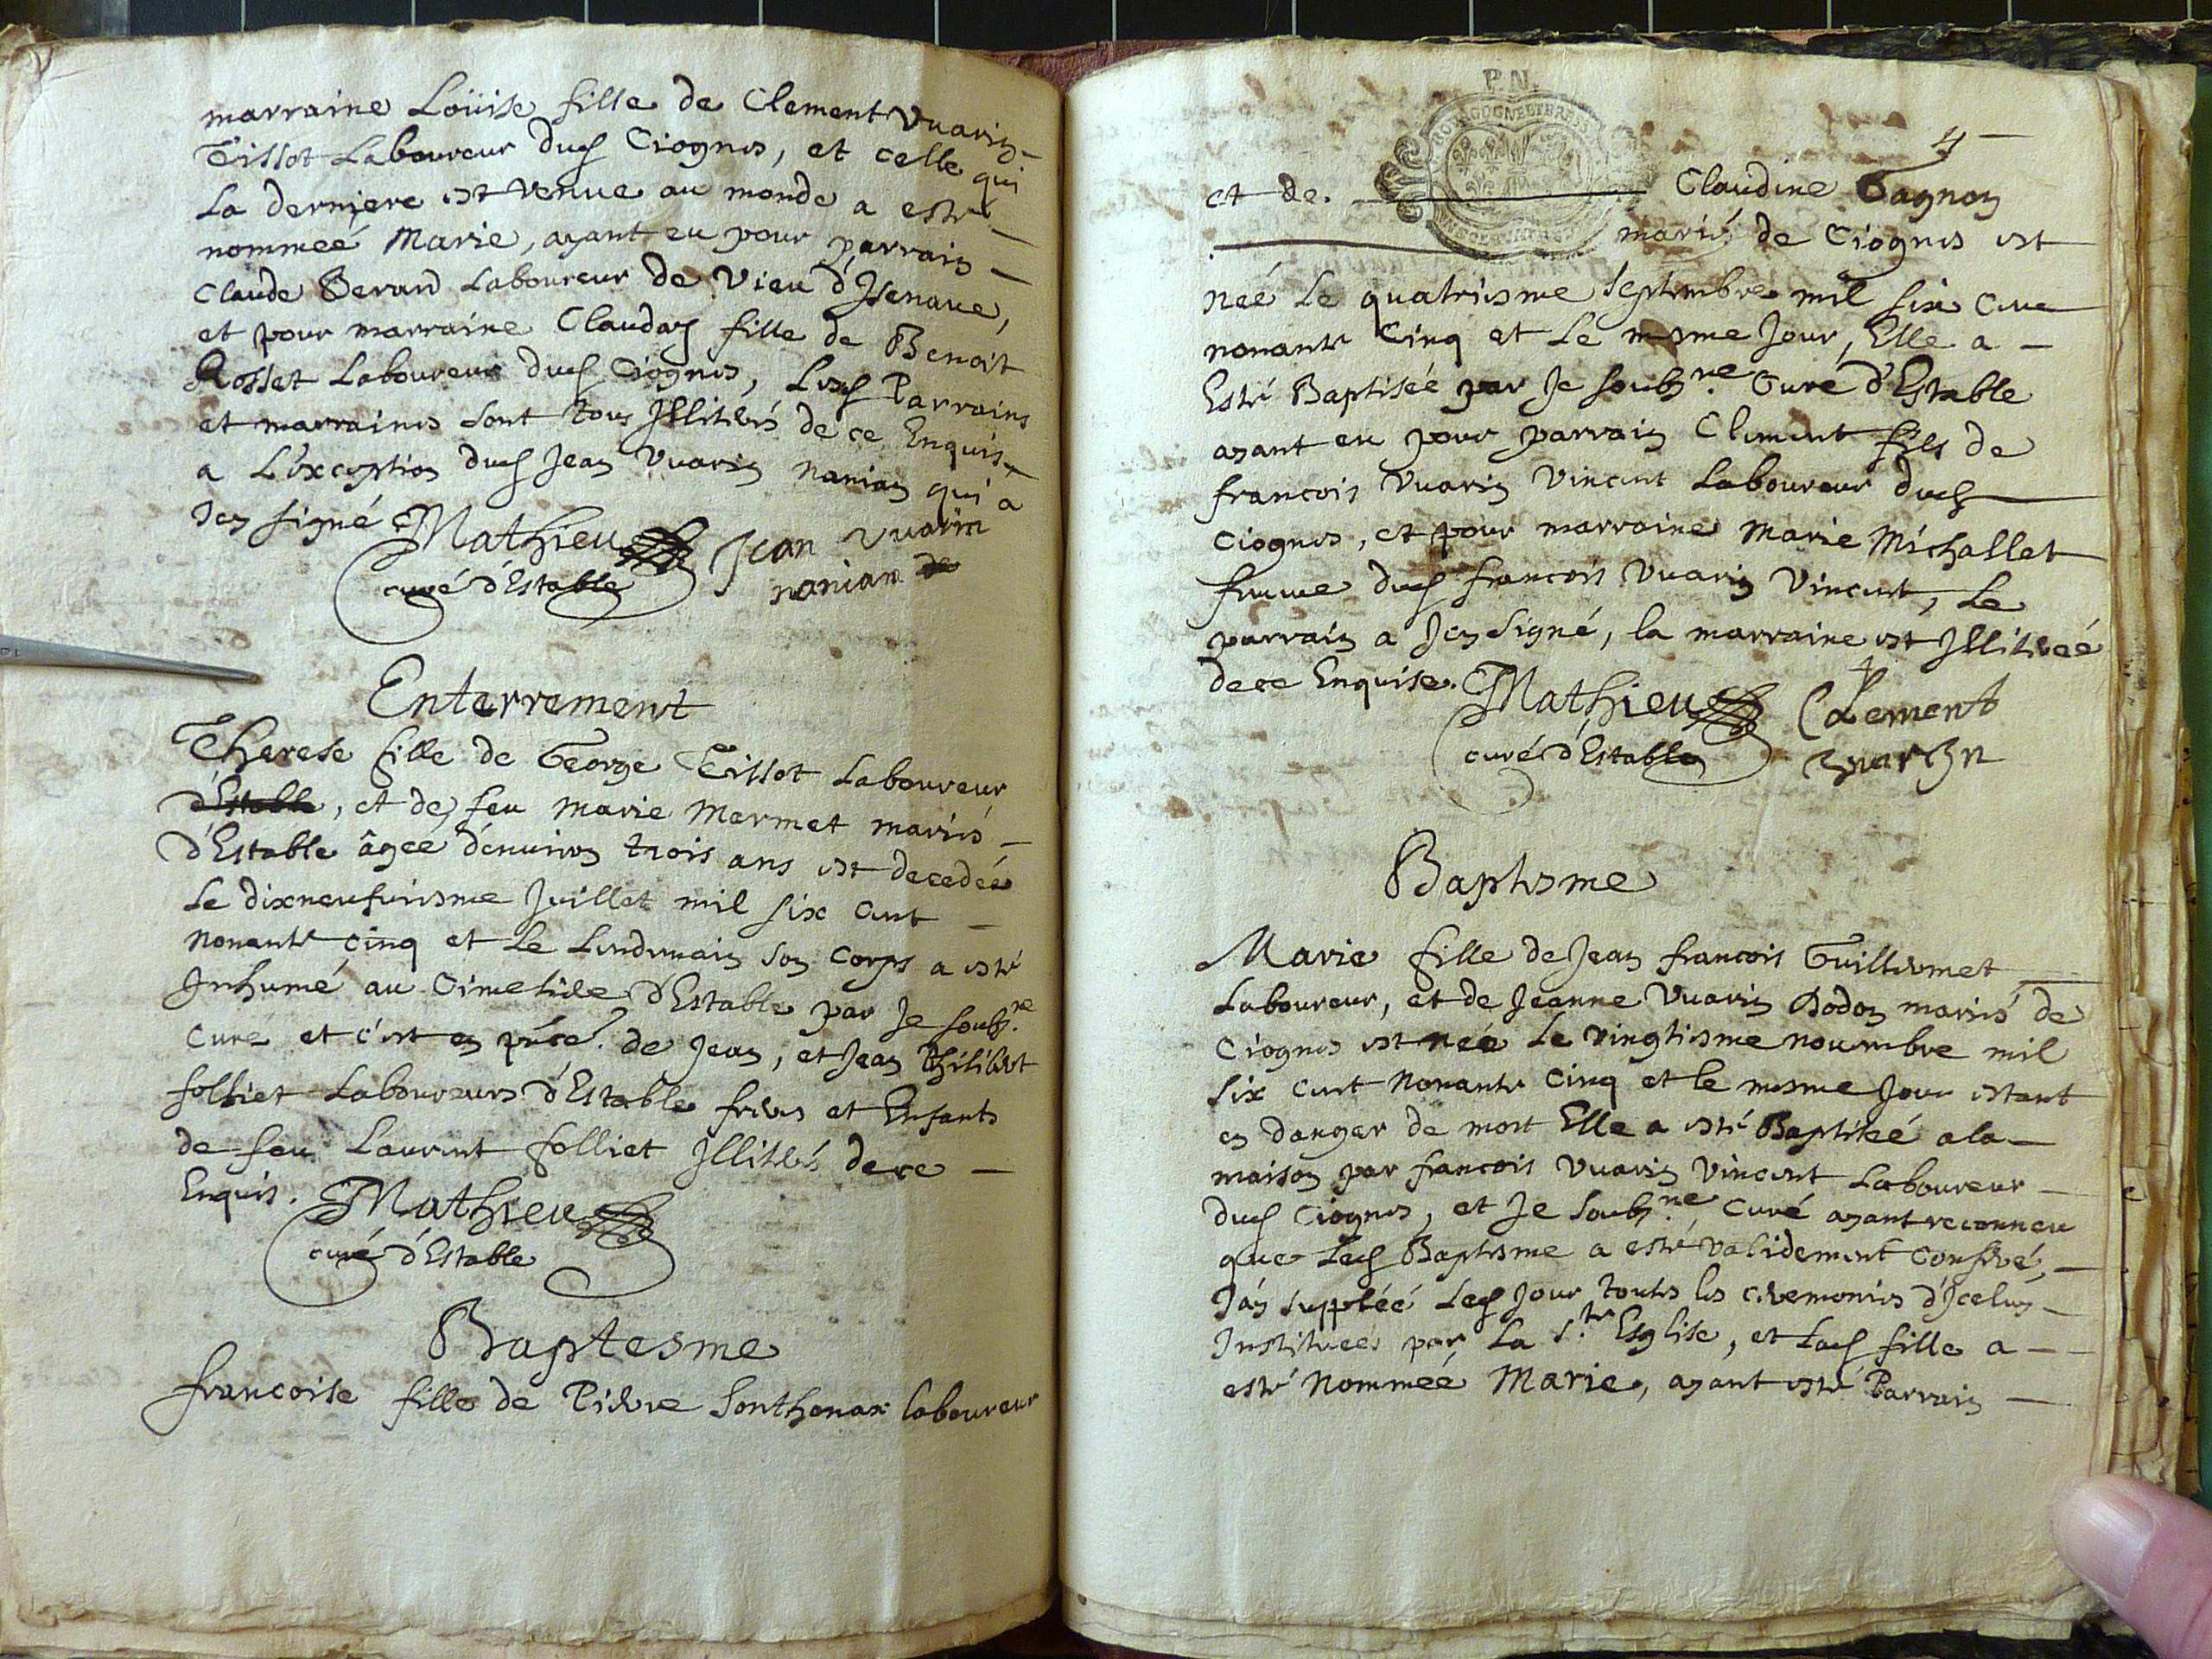 marraine Loüise fille de Clement Vuarin
Tissot Laboureur dud Ciognos, et celle qui
La derniere est venue au monde a esté
nommeé Marie, ayant eu pour parrain
Claude Berard Laboureur de Vieu d'Isenaue,
et pour marraine Clauday fille de Benoit
Rosset Laboureur dud Ciognos, Lesd Parrains
et marraines sont tous Illiterés de ce Enquis
a L'exception dud Jean Vuarin nanian qui a
Icy signé Mathieu Jean Vuarin
curé d'Estable nanian
Enterrement
Therese fille de George Tissot Laboureur
d'Estable, et de feu Marie Mermet mariés
d'Estable âgeé d'enuiron trois ans est decedeé
Le dixneufuiesme Juillet mil six cent
nonante cinq et Le Lendemain son corps a esté
Inhumé au Cimetiere d'Estable par Je soubs.ne
Curé et c'est en pñce. de Jean, et Jean Philibert
folliet Laboureurs d'Estable freres et Enfants
de feu Laurent folliet Illiterés de ce
Enquis. Mathieu
curé d'Estable
Baptesme
francoise fille de Pierre Sonthonax laboureur
P.N.
4
et de. Claudine Gagnon
mariés de Ciognos est
neé Le quatriesme septembre mil six cent
nonante Cinq et Le mesme Jour, Elle a
Esté Baptiseé par Je soubs.ne Curé d'Estable
ayant eu pour parrain Clement fils de
francois Vuarin Vincent Laboureur dud
Ciognos, et pour marraine Marie Michallet
femme dud francois Vuarin Vincent, Le
parrain a Icy signé, la marraine est Illitereé
de ce Enquise. Mathieu Clement
curé d'Estable vuarin
Baptesme
Marie fille de Jean francois Guillermet
Laboureur, et de Jeanne Vuarin Dodon mariés de
Ciognos est neé Le vingtiesme nouembre mil
six cent nonante cinq et le mesme Jour estant
en danger de mort Elle a esté Baptiseé a la
maison par francois Vuarin Vincent Laboureur
dud Ciognos, et Je soubs.ne Curé ayant reconneu
que Led Baptesme a esté validement conferé,
J'ay suppleé Led Jour toutes les ceremonies d'Iceluy
Instituees par La s.te Esglise, et Lad fille a
esté Nommeé Marie, ayant esté Parrain